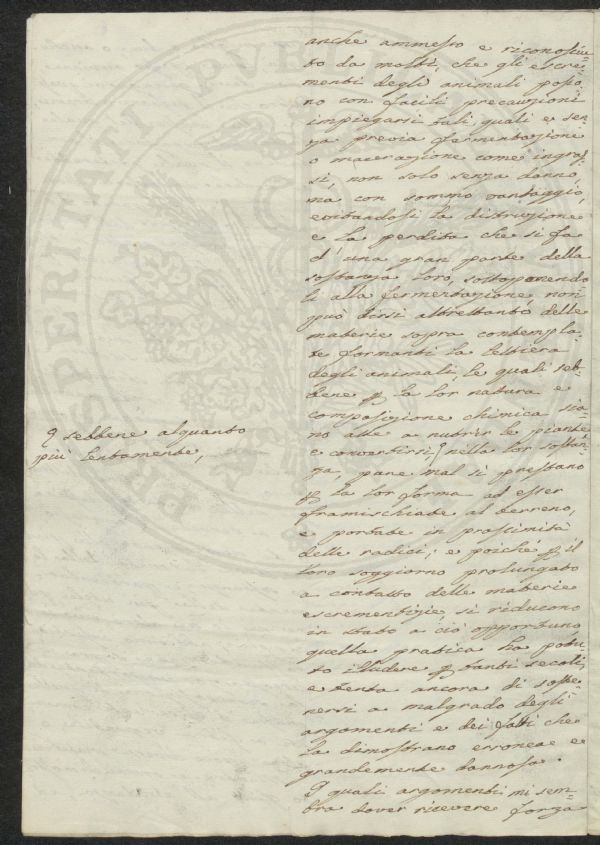 anche ammesso e riconosciu-
to da molti, che gli escre-
menti degli animali posso-
no con facili precauzioni
impiegarsi tali quali e sen-
za previa fermentazione
o macerazione come ingras-
si, non solo senza danno,
ma con sommo vantaggio,
evitandosi la distruzione
e la perdita che si fa
d'una gran parte della
sostanza loro, sottoponendo-
li alla fermentazione, non
può dirsi altrettanto delle
materie sopra contempla-
te formanti la lettiera
degli animali, le quali seb-
bene p la lor natura e
composizione chimica sia-
no atte a nutrir le piante
e convertirsi nella lor sostan-
za, pure mal si prestano
p la lor forma ad esser
framischiate al terreno,
e portate in prossimità
delle radici; e poiché p il
loro soggiorno prolungato
a contatto delle materie
escrementizie, si riducono
in stato a ciò opportuno,
quella pratica ha potu-
to illudere p tanti secoli,
e tenta ancora di soste-
nersi a malgrado degli
argomenti e dei fatti che
la dimostrano erronea e
grandemente dannosa.
I quali argomenti mi sem-
bra dover ricevere forza
sebbene alquanto
più lentamente,
PROSPERITATI PVBLICAE